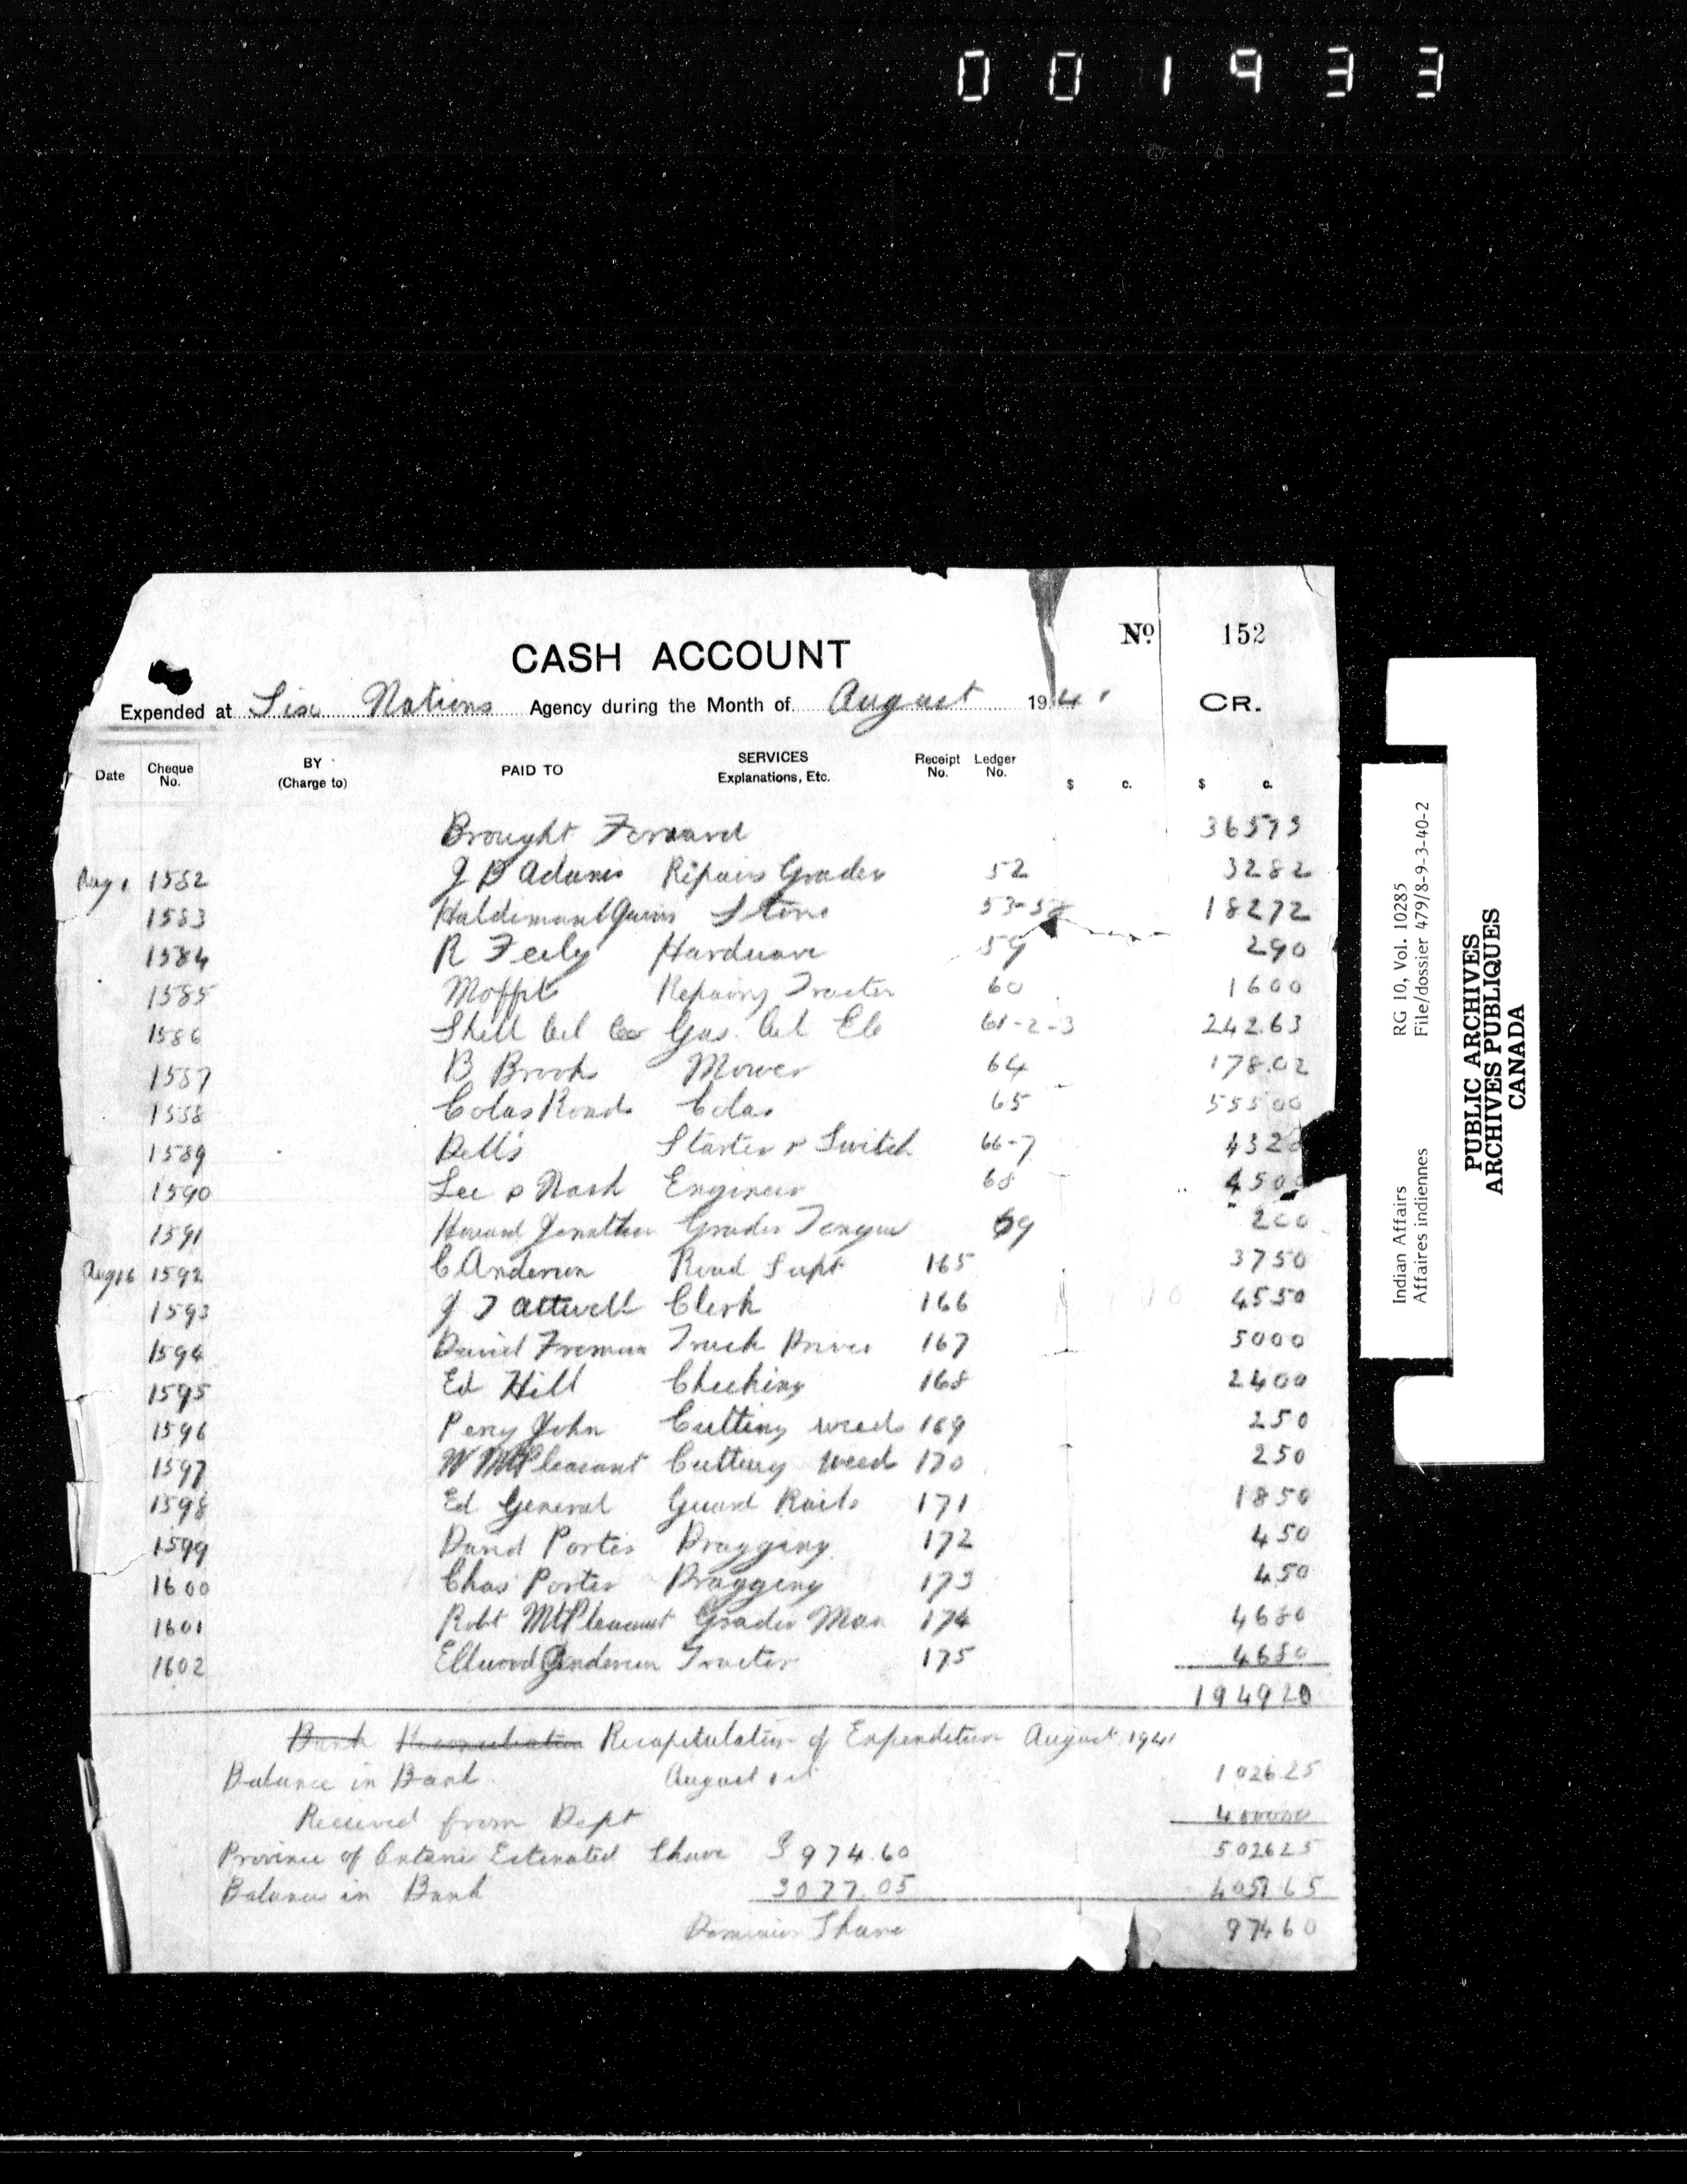 001933
No 152
CASH ACCOUNT
Expended at Six Nations Agency during the Month of August 1941 CR.
Date Cheque No. BY (Charge to) PAID TO SERVICES Explanations, Etc. Receipt No. Ledger No. $ c. $ c.
Brought Forward 36573
Aug 1 1582 J B Adams Repairs Grader 52 3282
1583 Stone 53-58 18272
1584 R Feely Hardware 59 290
1585 Moffit Repairing Tractor 60 1600
1586 Shell Oil Co Gas. Oil Etc 61-2-3 242.63
1587 B Brooks Mower 64 178.02
1588 Colas Roads Colas 65 55500
1589 Dell's Starter & Switch 66-7 4320
1590 Lee & Nash Engineer 68 4500
1591 Howard Jonathan Grader Tongue 69 200
Aug 16 1592 C Anderson Road Supt 165 3750
1593 J T Attwell Clerk 166 4550
1594 David Freman Truck Driver 167 5000
1595 Ed Hill Checking 168 2400
1596 Percy John Cutting weeds 169 250
1597 W MtPleasant Cutting Weed 170 250
1598 Ed General Guard Rails 171 1850
1599 David Porter Dragging 172 450
1600 Chas Porter Dragging 173 450
1601 Robt MtPleasant Grader Man 174 4680
1602 Ellwood Anderson Tractor 175 4680
194920
Bank Reconciliation Recapitulation of Expenditure August 1941
Balance in Bank August 1st 1026.25
Received from Dept 400000
Province of Ontario Estimated Share $974.60 502625
Balance in Bank 3077.05 405165
Dominion Share 97460
Indian Affairs RG 10, Vol. 10285
Affaires indiennes File/dossier 479/8-9-3-40-2
PUBLIC ARCHIVES
ARCHIVES PUBLIQUES
CANADA